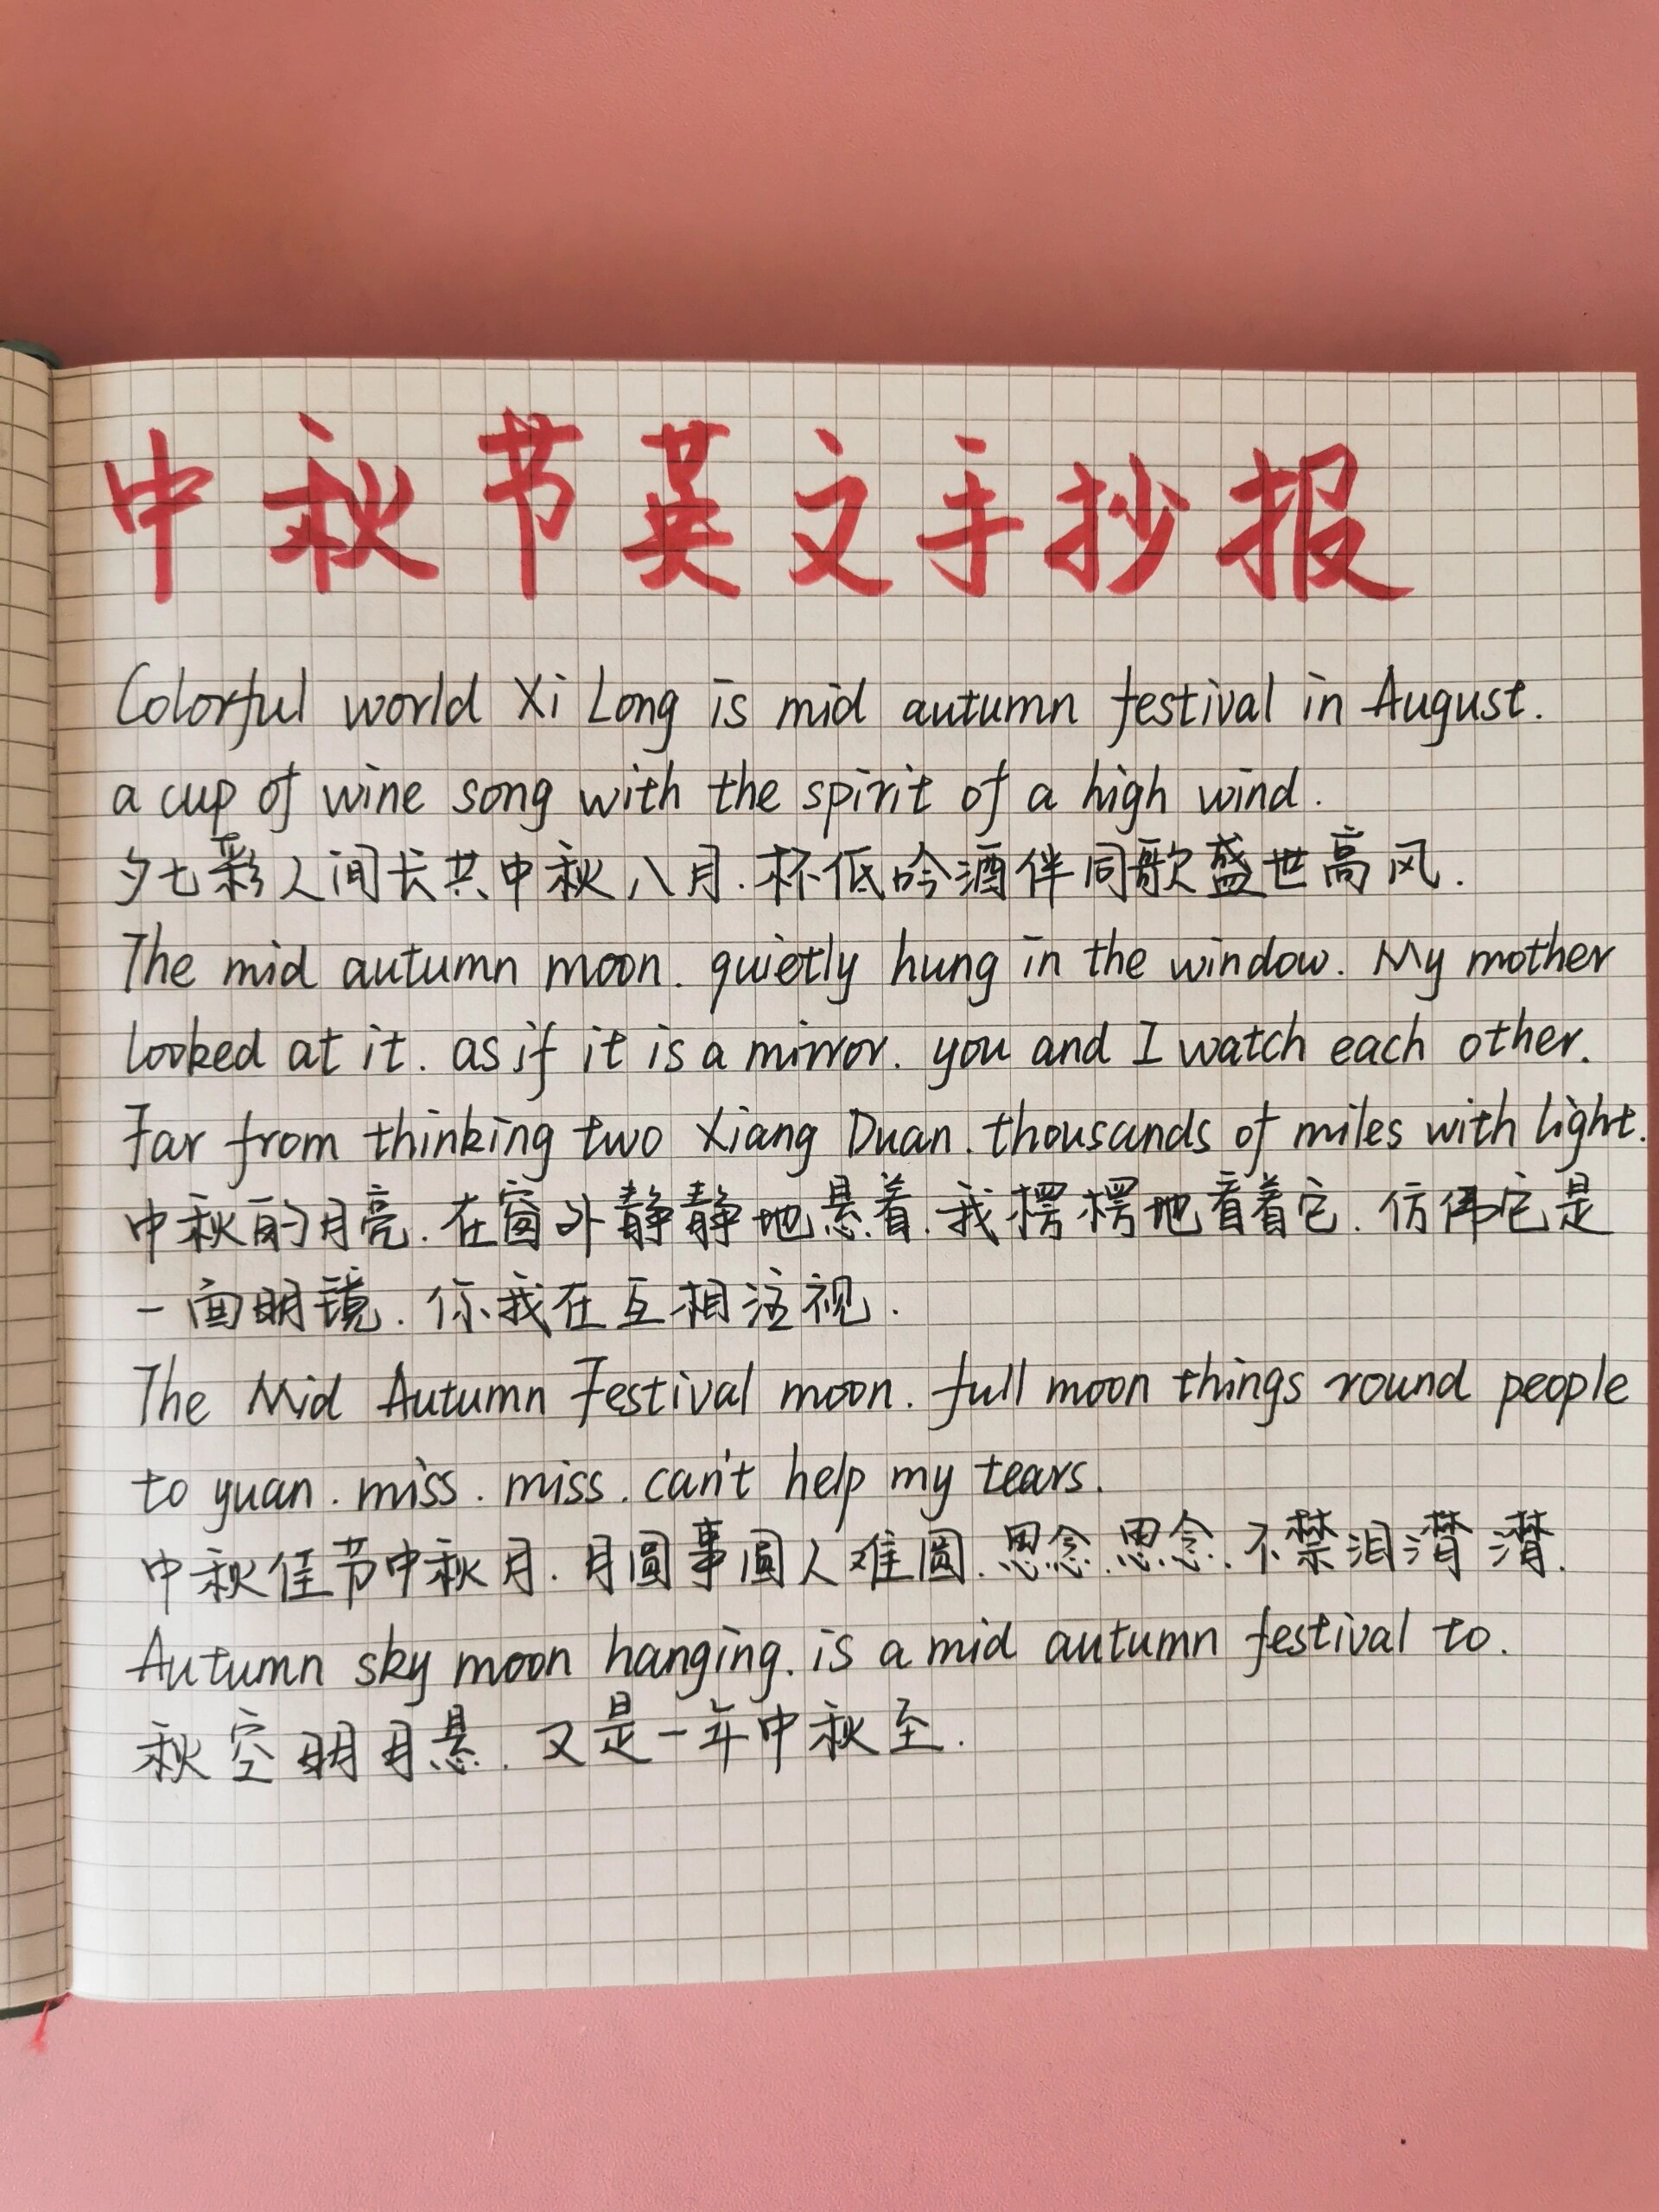 中秋节英文手抄报
Colorful world Xi Long is mid autumn festival in August.
a cup of wine song with the spirit of a high wind.
夕七彩人间长共中秋八月.杯低吟酒伴同歌盛世高风.
The mid autumn moon. quietly hung in the window. My mother
looked at it. as if it is a mirror. you and I watch each other.
Far from thinking two Xiang Duan. thousands of miles with light.
中秋的月亮.在窗外静静地悬着.我愣愣地看着它.仿佛它是
一面明镜.你我在互相注视.
The Mid Autumn Festival moon. full moon things round people
to yuan. miss. miss. can't help my tears.
中秋佳节中秋月.月圆事圆人难圆.思念.思念.不禁泪潸潸.
Autumn sky moon hanging. is a mid autumn festival to.
秋空明月悬.又是一年中秋至.